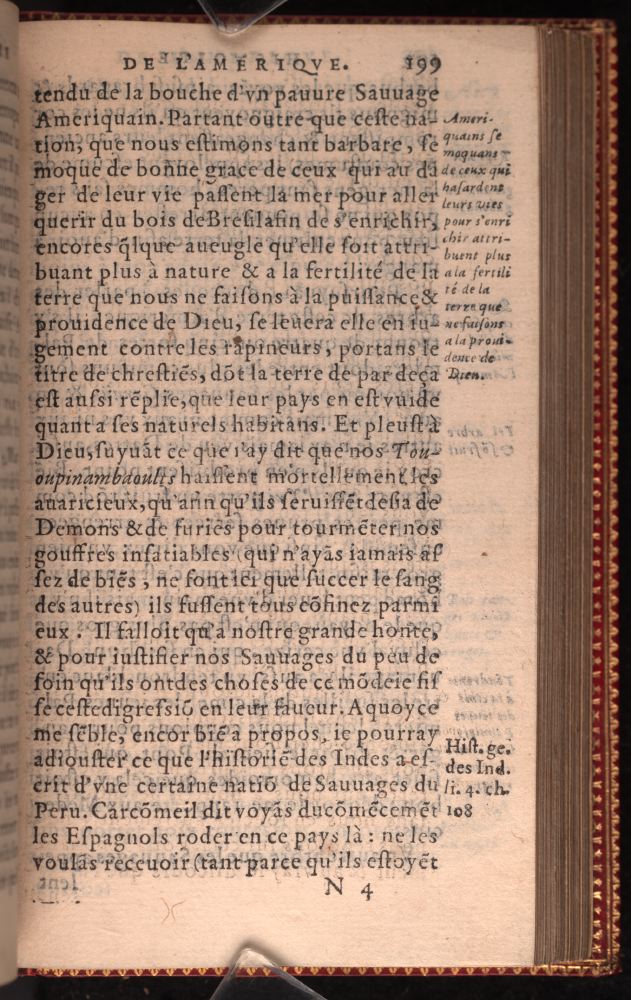 DE L'AMERIQVE. 199
tendu de la bouche d'vn pauure Sauuage
Ameriquain. Partant outre que ceste na-
tion, que nous estimons tant barbare, se
moque de bonne grace de ceux qui au dã
ger de leur vie passent la mer pour aller
querir du bois de Bresil afin de s'enrichir,
encores q̃lque aueugle qu'elle soit attri-
buant plus à nature & a la fertilité de la
terre que nous ne faisons à la puissance &
prouidence de Dieu, se leuera elle en iu-
gement contre les rapineurs, portans le
titre de chrestiẽs, dõt la terre de par deça
est aussi rẽplie, que leur pays en est vuide
quant a ses naturels habitans. Et pleust à
Dieu, suyuãt ce que i'ay dit que nos Tou-
oupinambaoults haissent mortellement les
auaricieux, qu'afin qu'ils seruissẽt desia de
Demons & de furies pour tourmẽter nos
gouffres insatiables (qui n'ayãs iamais as
sez de biẽs, ne font ici que succer le sang
des autres) ils fussent tous cõfinez parmi
eux. Il falloit qu'à nostre grande honte,
& pour iustifier nos Sauuages du peu de
soin qu'ils ont des choses de ce mõde ie fis
se ceste digressiõ en leur faueur. A quoy ce
me sẽble, encor biẽ a propos, ie pourray
adiouster ce que l'historiẽ des Indes a es-
crit d'vne certaine natiõ de Sauuages du
Peru. Car cõme il dit voyãs du cõmẽcemẽt
les Espagnols roder en ce pays là : ne les
voulãs receuoir (tant parce qu'ils estoyẽt
N 4
Ameri-
quains se
moquans
de ceux qui
hasardent
leurs vies
pour s'enri
chir attri-
buent plus
a la fertili
té de la
terre que
ne faisons
a la proui-
dence de
Dieu.
Hist. ge.
des Ind.
li. 4. ch.
108